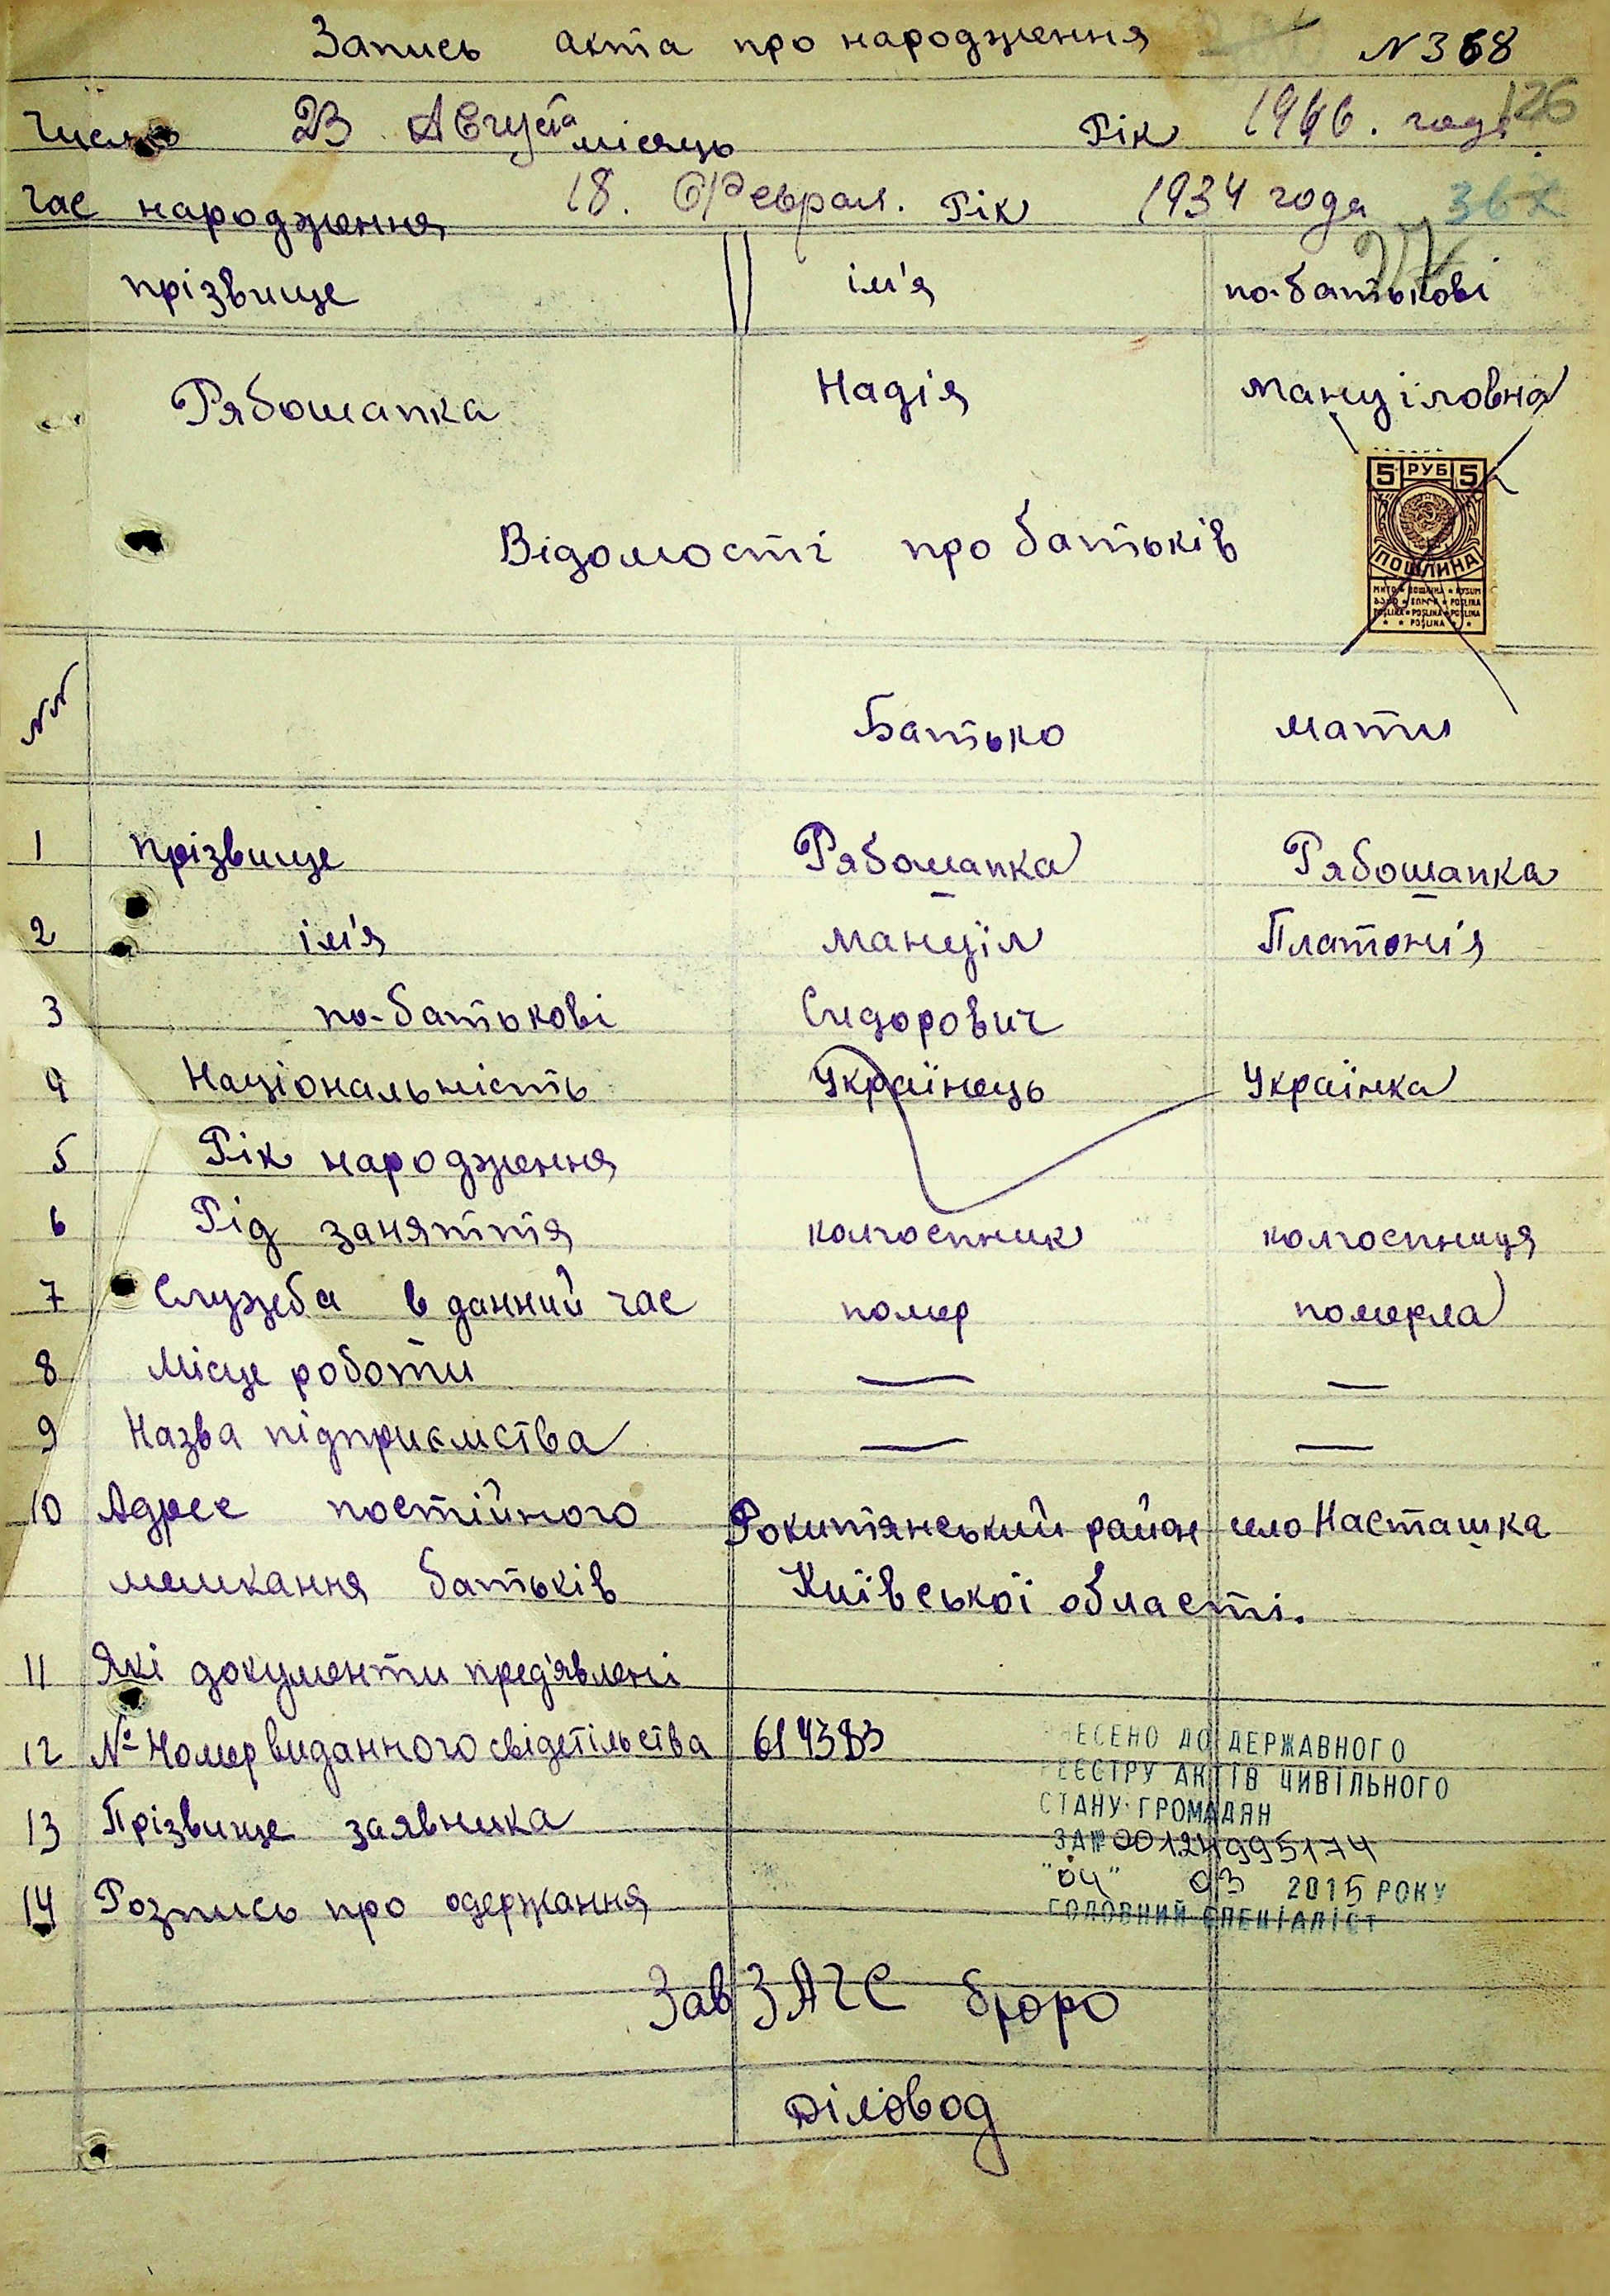 Запись акта про народження N 368
Число 23 Августа місяць Рік 1946. года 126
Час народження 18. Февраля. Рік 1934 года
прізвище ім'я по-батькові
Рябошапка Надія Мануіловна
5 РУБ 5
ПОШЛИНА
Відомості про батьків
NN Батько мати
1 прізвище Рябошапка Рябошапка
2 ім'я Мануїл Платонія
3 по-батькові Сидорович
4 Національність Українець Українка
5 Рік народження
6 Рід заняття колгоспник колгоспниця
7 Служба в данний час помер померла
8 Місце роботи — —
9 Назва підприємства — —
10 Адрес постійного Рокитянський район село Насташка
мешкання батьків Київської області.
11 Які документи пред'явлені
12 № Номер виданного свідетільства 614383
ВНЕСЕНО ДО ДЕРЖАВНОГО
РЕЄСТРУ АКТІВ ЦИВІЛЬНОГО
СТАНУ ГРОМАДЯН
13 Прізвище заявника
ЗА № 00124995174
"04" 03 2015 РОКУ
14 Розпись про одержання
ГОЛОВНИЙ СПЕЦІАЛІСТ
Зав ЗАГС бюро
Діловод